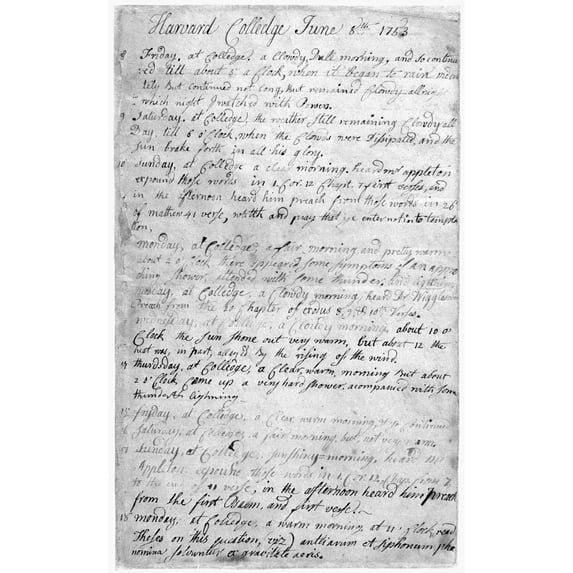 Harvard Colledge June 8th 1753
8 Friday, at Colledge, a Clowdy, Dull morning, and so continu
ed till about 5 a Clock, when it began to rain vio
lently But continued not long, But remained Clowdy all nigh
t which night I watched with Powers.
9 Saturday, at Colledge, the weather still remaining Clowdy all
Day, till 6 o'Clock, when the Clowds were Dissipated, and the
sun brake forth in all his glory.
10 Sunday, at Colledge a clear morning. heard mr appleton
expound those words in 1. Cor. 12 Chapt. 7 first verses, and
in the afternoon heard him preach from those words in 26
of mathew 41 verse, watch and pray that ye enter not into tempta
tion,
monday, at Colledge, a fair, morning, and pretty warm
about 2 o'Clock there appeared some symptoms of an appro
ching shower, attended with some thunder, and lightning.
tuesday, at Colledge, a Clowdy morning, heard Dr Wiggles
Preach from the 20 Chapter of exodus 8, 9th 10th Verses.
wednesday, at Colledge, a Clowdy morning, about 10 o'
Clock the Sun shone out very warm, but about 12 the
heat was, in part, allay'd, By the rising of the wind.
14 thursday, at Colledge, a Clear, warm, morning But about
2 o'Clock came up a very hard shower, acompanied with some
thunder & lightning
15 friday, at Colledge, a Clear, warm morning, continues
Saturday, at Colledge, a fair morning, but, not very warm.
Sunday, at Colledge, sunshiny morning, heard mr
Appleton, expound, those words in 1. Cor. 12. from 7
to the end of 11 verse, in the afternoon heard him preach
from the first Psalm, and first verse.
18 monday, at Colledge, a warm morning, at 11 o'Clock, read
Theses on this quation, (viz) antliarum et siphonum phæ
nomina solvuntur a gravitate aeris.